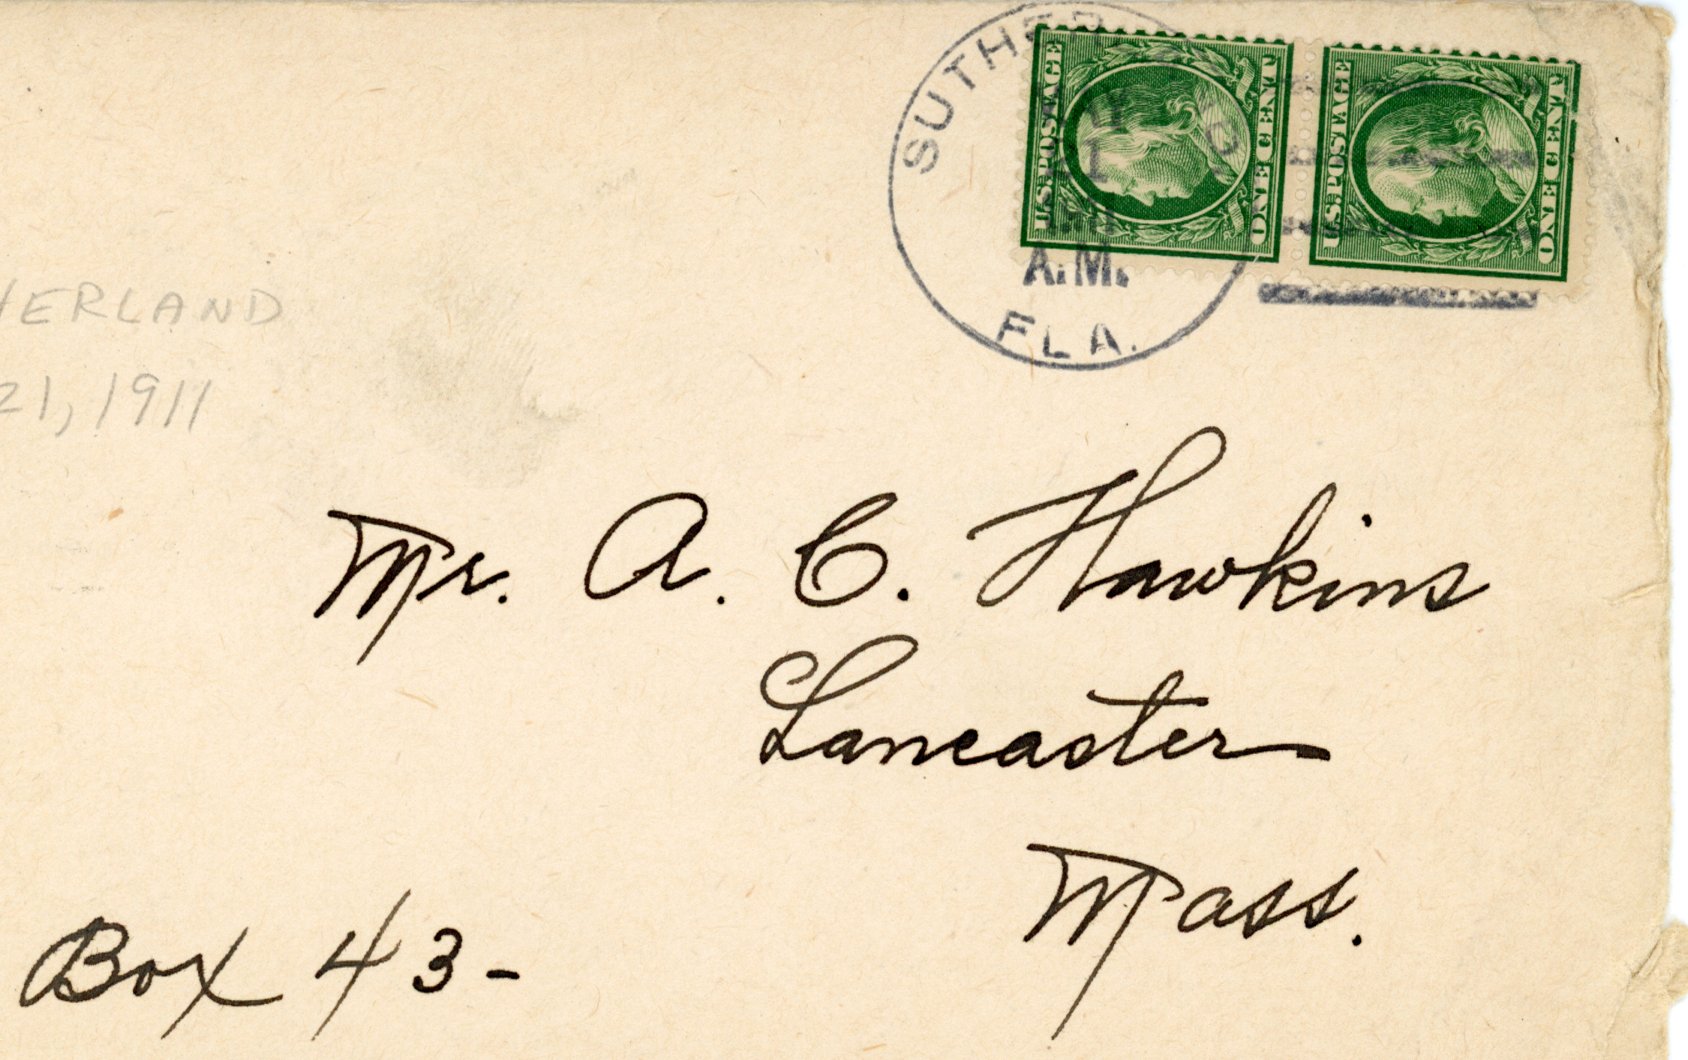 SUTHER
21
A.M.
FLA.
U.S. POSTAGE
ONE CENT
U.S. POSTAGE
ONE CENT
HERLAND
21, 1911
Mr. A. C. Hawkins
Lancaster
Mass.
Box 43-